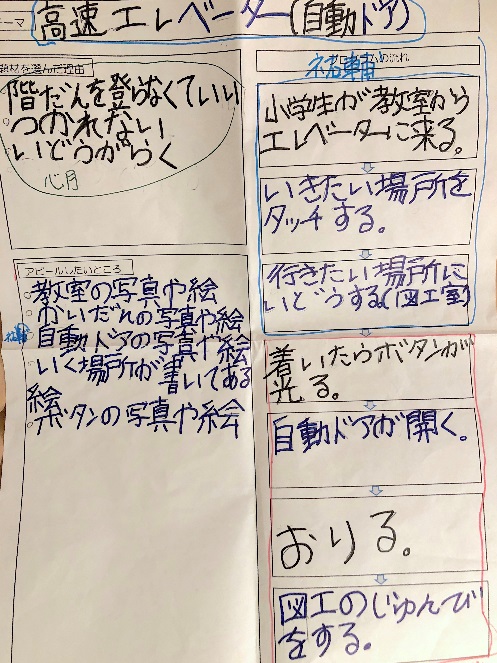 高速エレベーター(自動ドア)
題材を選んだ理由
階だんを登らなくていい
つかれない
いどうがらく
心月
アピールしたいところ
教室の写真や絵
かいだんの写真や絵
自動ドアの写真や絵
いく場所が書いてある
絵
ボタンの写真や絵
小学生が教室から
エレベーターに来る。
いきたい場所を
タッチする。
行きたい場所に
いどうする(図工室)
着いたらボタンが
光る。
自動ドアが開く。
おりる。
図工のじゅんび
をする。